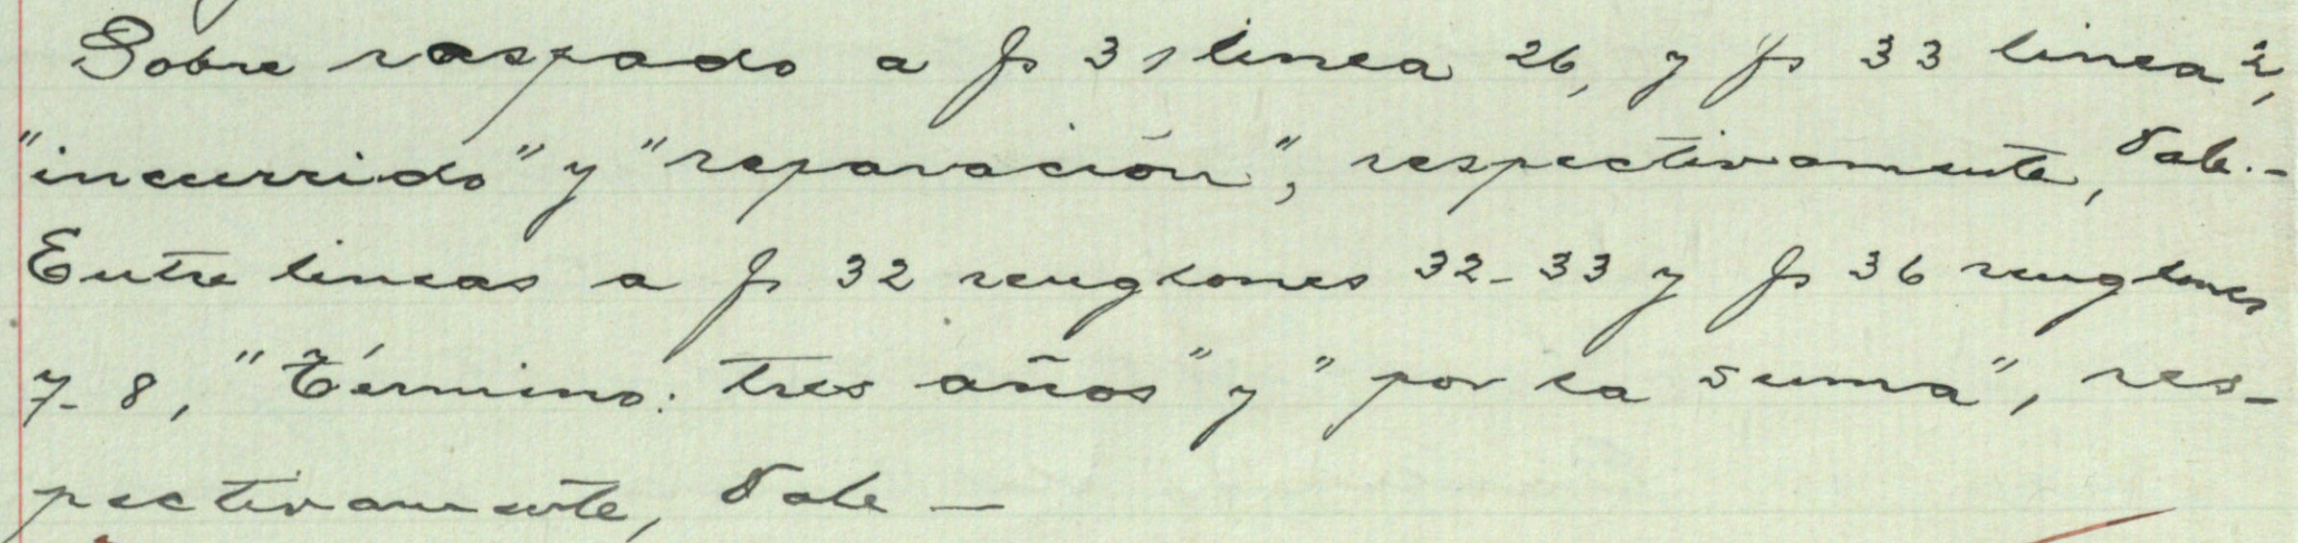 Sobre raspado a fs 31 linea 26, y fs 33 linea 2,
"incurrido" y "reparación", respectivamente, Vale.-
Entre lineas a fs 32 renglones 32-33 y fs 36 renglones
7-8, "Término: tres años" y "por la suma", res-
pectivamente, Vale —